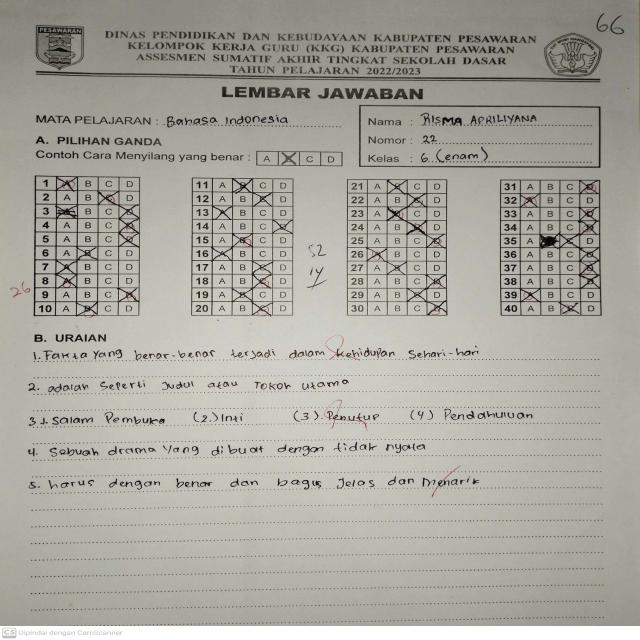 PESAWARAN
66
DINAS PENDIDIKAN DAN KEBUDAYAAN KABUPATEN PESAWARAN
KELOMPOK KERJA GURU (KKG) KABUPATEN PESAWARAN
ASSESMEN SUMATIF AKHIR TINGKAT SEKOLAH DASAR
TAHUN PELAJARAN 2022/2023
LEMBAR JAWABAN
MATA PELAJARAN : Bahasa Indonesia
Nama : RISMA APRILIYANA
Nomor : 22
Kelas : 6 (enam)
A. PILIHAN GANDA
Contoh Cara Menyilang yang benar : A B C D
1 A B C D 11 A B C D 21 A B C D 31 A B C D
2 A B C D 12 A B C D 22 A B C D 32 A B C D
3 A B C D 13 A B C D 23 A B C D 33 A B C D
4 A B C D 14 A B C D 24 A B C D 34 A B C D
5 A B C D 15 A B C D 25 A B C D 35 A B C D
6 A B C D 16 A B C D 26 A B C D 36 A B C D
7 A B C D 17 A B C D 27 A B C D 37 A B C D
8 A B C D 18 A B C D 28 A B C D 38 A B C D
9 A B C D 19 A B C D 29 A B C D 39 A B C D
10 A B C D 20 A B C D 30 A B C D 40 A B C D
26
52
14
B. URAIAN
1. Fakta yang benar-benar terjadi dalam kehidupan sehari-hari
2. adalah seperti Judul atau Tokoh utama
3 1. Salam Pembuka (2.) Inti (3) Penutup (4) Pendahuluan
4. Sebuah drama yang dibuat dengan tidak nyata
5. harus dengan benar dan bagus Jelas dan Menarik
CS Dipindai dengan CamScanner